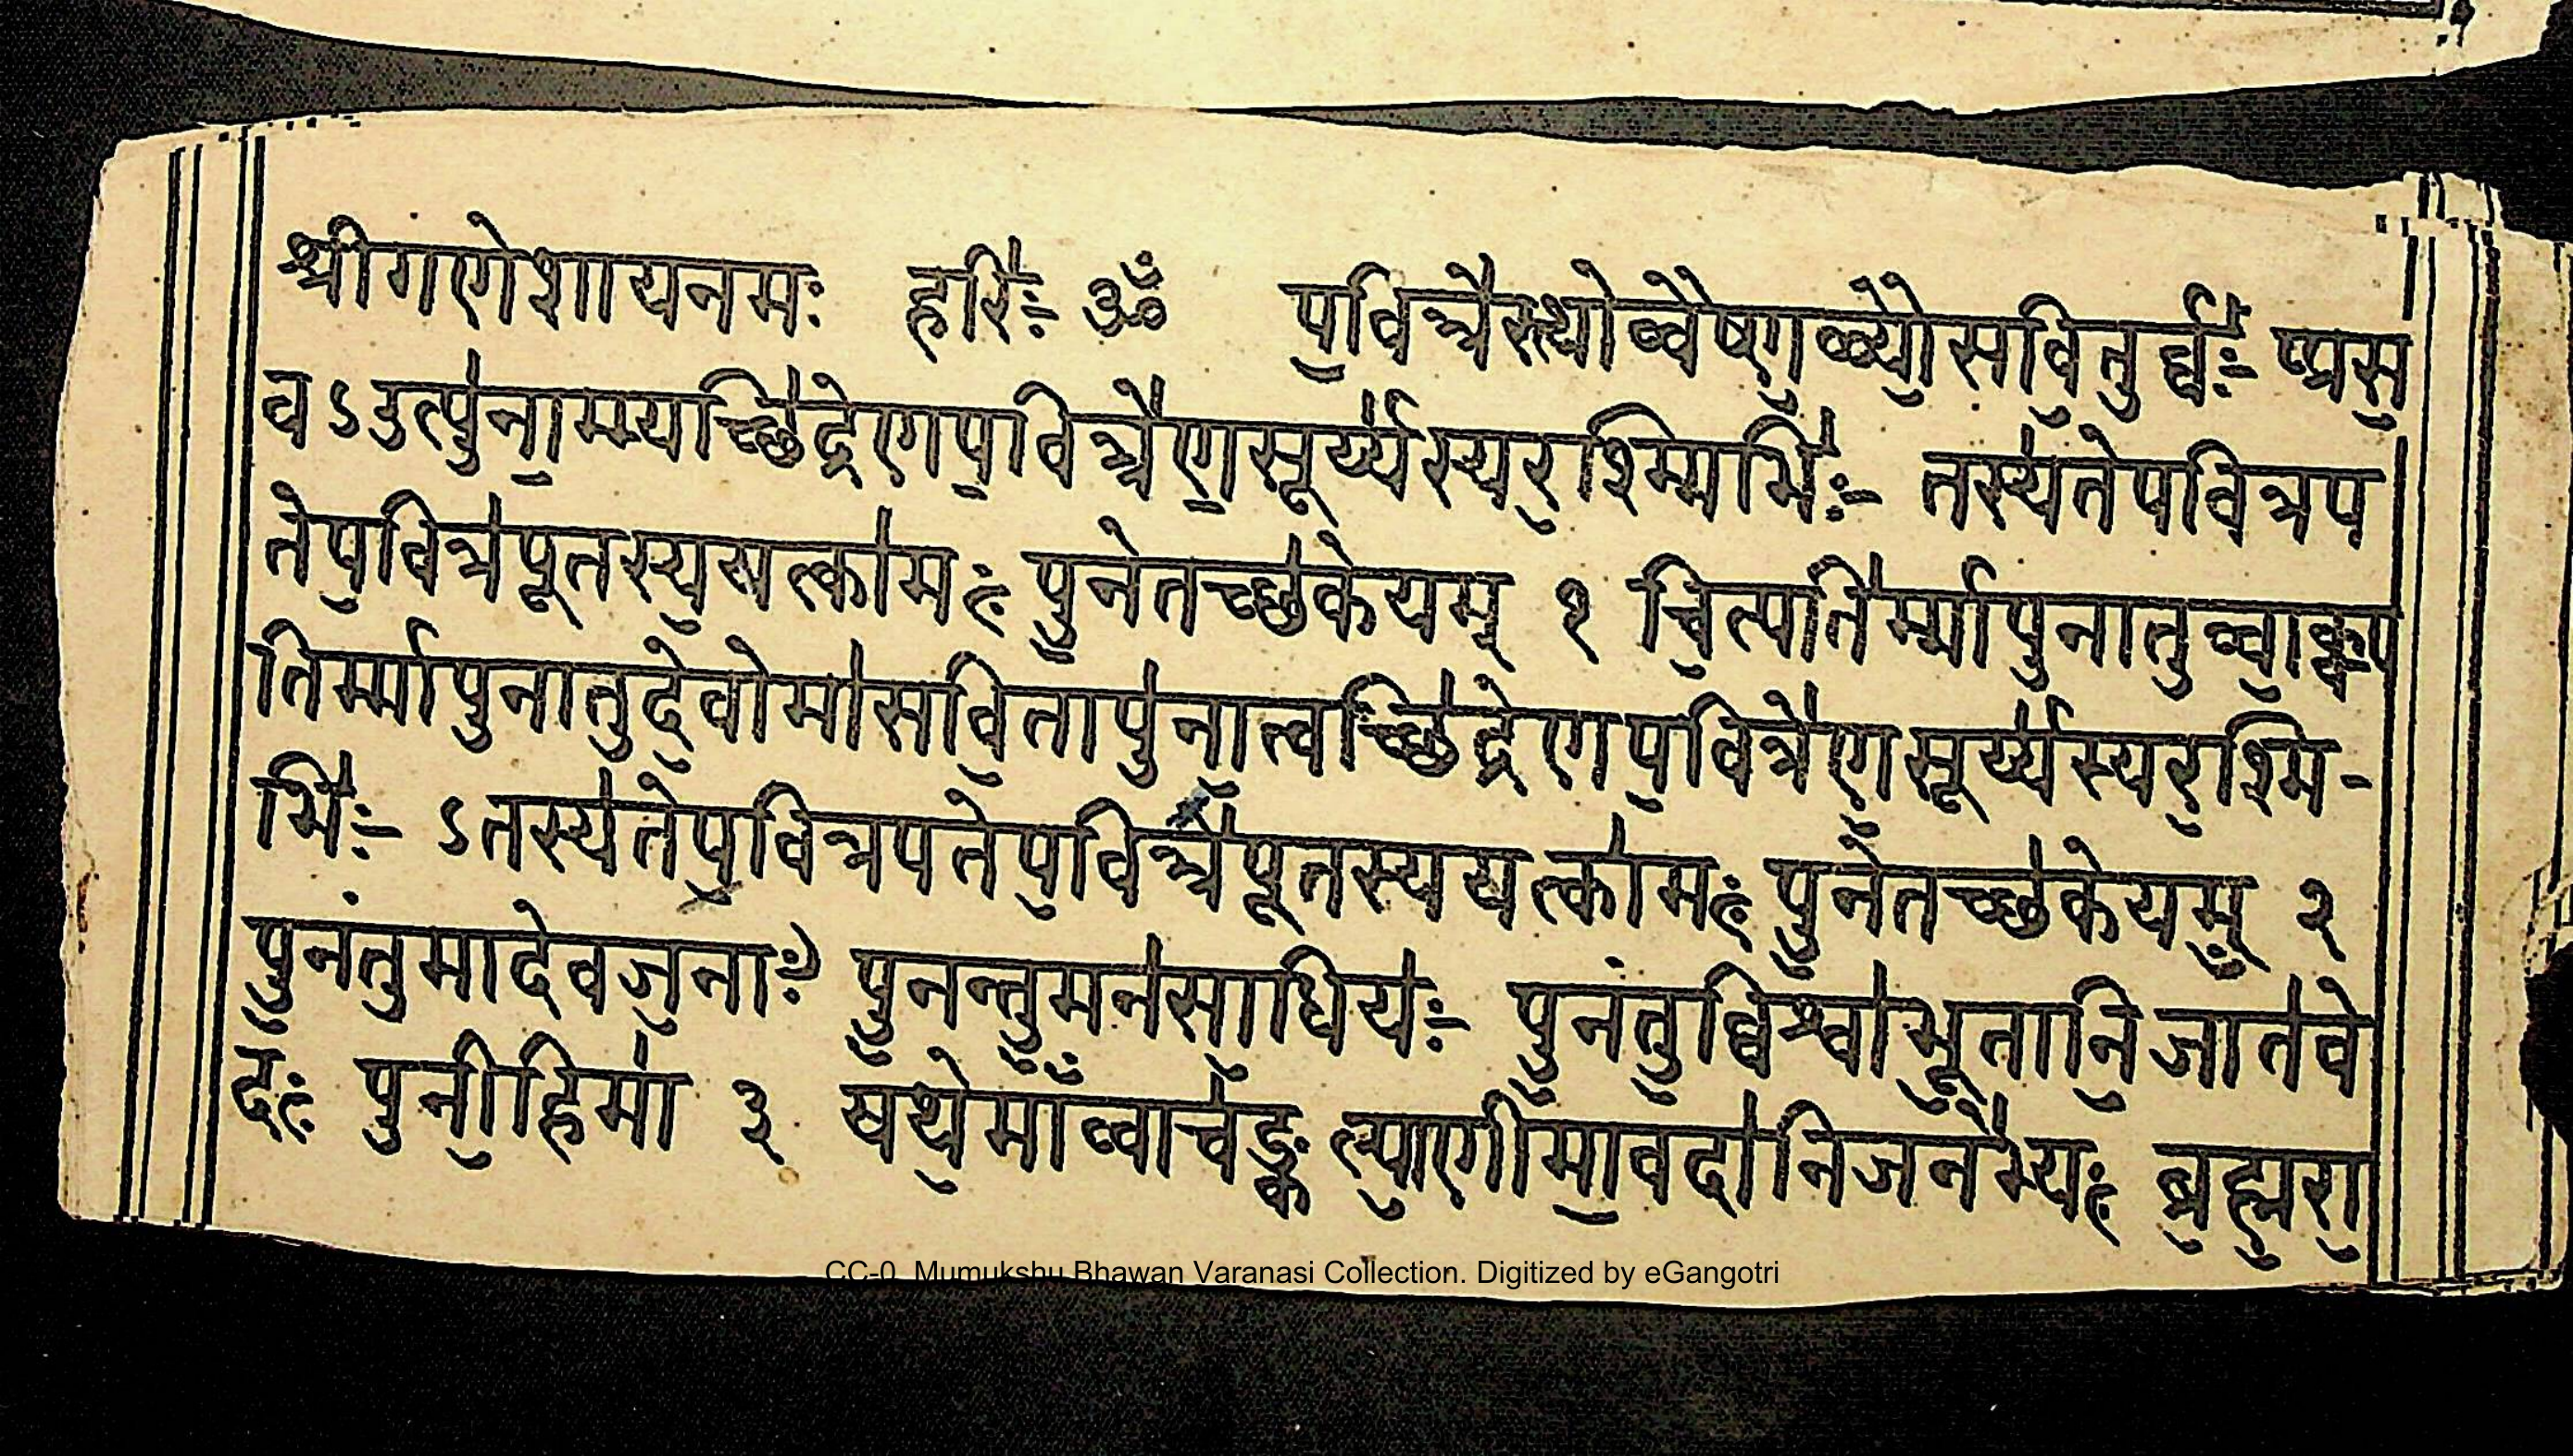 श्रीगणेशायनमः हरिः॑- ॐ प॒वित्त्रे॑स्त्थोव्वैष्ण॒व्यौ॒सवि॒तुर्व्वः॑- प्प्रस॒
वऽउत्पु॑ना॒म्म्यच्छि॑द्रेणप॒वित्त्रे॑ण॒सूर्य्य॑स्यर॒श्म्मिभिः॑- तस्य॑तेपवित्रप
तेप॒वित्र॑पूतस्य॒यत्का॑मः पु॒नेतच्छ॑केयम् १ चि॒त्पति॑र्म्मापुनातुव्वा॒क्प
तिर्म्मापुनातुदे॒वोमा॑सवि॒तापु॑ना॒त्वच्छि॑द्रेणप॒वित्रे॑ण॒सूर्य्य॑स्यर॒श्मि-
भिः॑- ऽतस्य॑तेप॒वित्रपतेप॒वित्त्र॑पूतस्ययत्का॑मः पु॒नेतच्छ॑केयम् २
पु॒नंतुमादेवज॒नाः पु॒नन्तु॒मन॑सा॒धियः॑- पु॒नंतु॒व्विश्वा॑भू॒तानि॒जात॑वे
दः पुनी॒हिमा॑ ३ यथे॒माँव्वाच॑ङ्क॒ल्याणीमा॒वदा॑निजने॑भ्यः ब्र॒ह्म॒रा॒
CC-0. Mumukshu Bhawan Varanasi Collection. Digitized by eGangotri